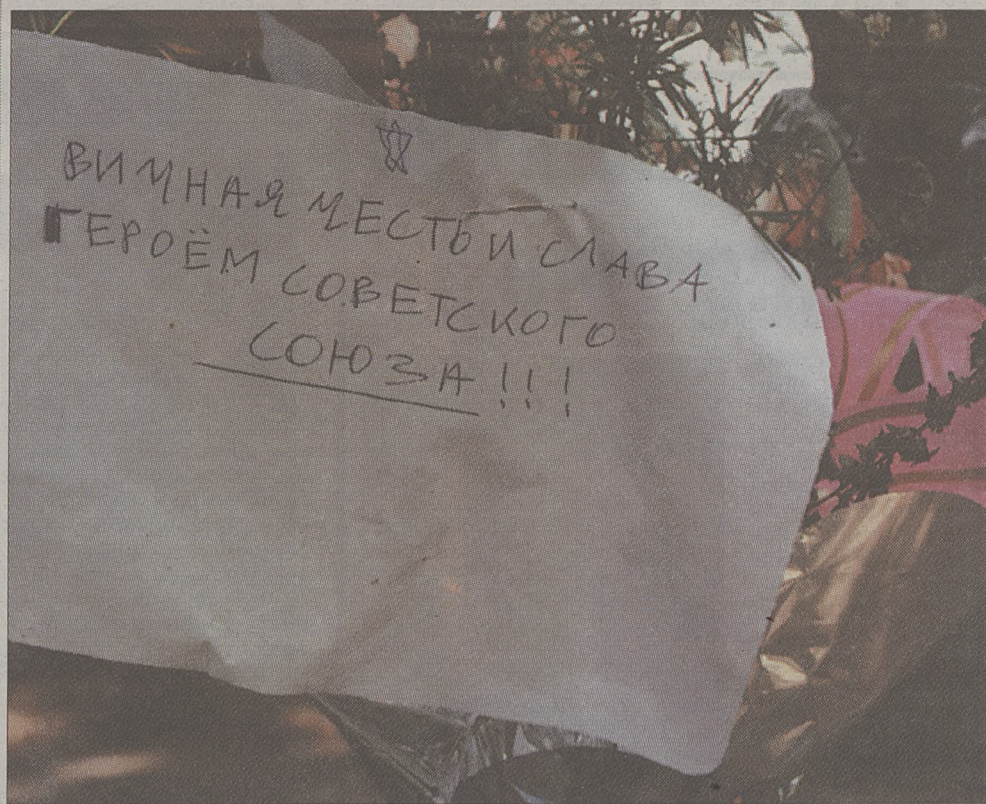 ВИЧНАЯ ЧЕСТЬ И СЛАВА
ГЕРОЁМ СОВЕТСКОГО
СОЮЗА!!!